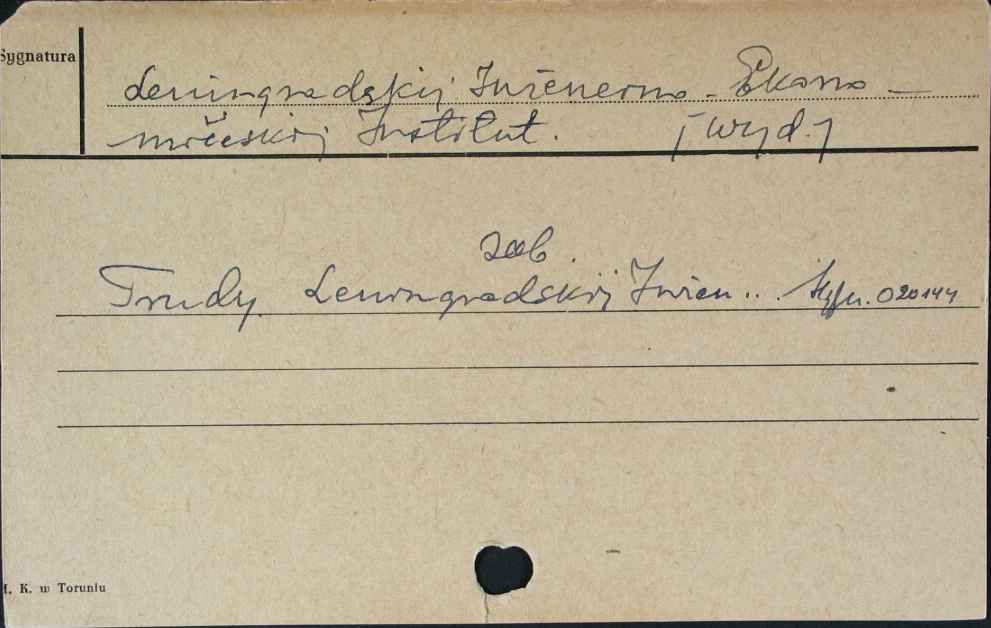 Sygnatura
Leningradskij Inženerno-Ekono-
mičeskij Institut. [wyd.]
zob.
Trudy Leningradskij Inžen... Sygn. 020144
M. K. w Toruniu